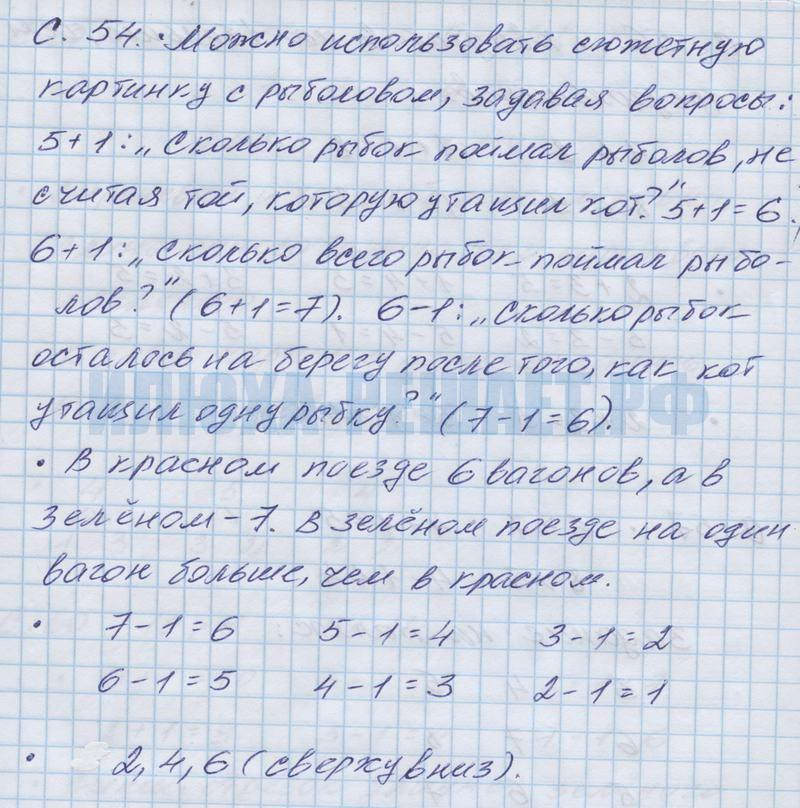 С. 54. • Можно использовать сюжетную
картинку с рыболовом, задавая вопросы:
5+1: „Сколько рыбок поймал рыболов, не
считая той, которую утащил кот?" 5+1=6.
6+1: „Сколько всего рыбок поймал рыбо-
лов?" (6+1=7). 6-1: „Сколько рыбок
осталось на берегу после того, как кот
утащил одну рыбку?" (7-1=6).
• В красном поезде 6 вагонов, а в
зелёном - 7. В зелёном поезде на один
вагон больше, чем в красном.
• 7-1=6 5-1=4 3-1=2
6-1=5 4-1=3 2-1=1
• 2, 4, 6 (сверху вниз).